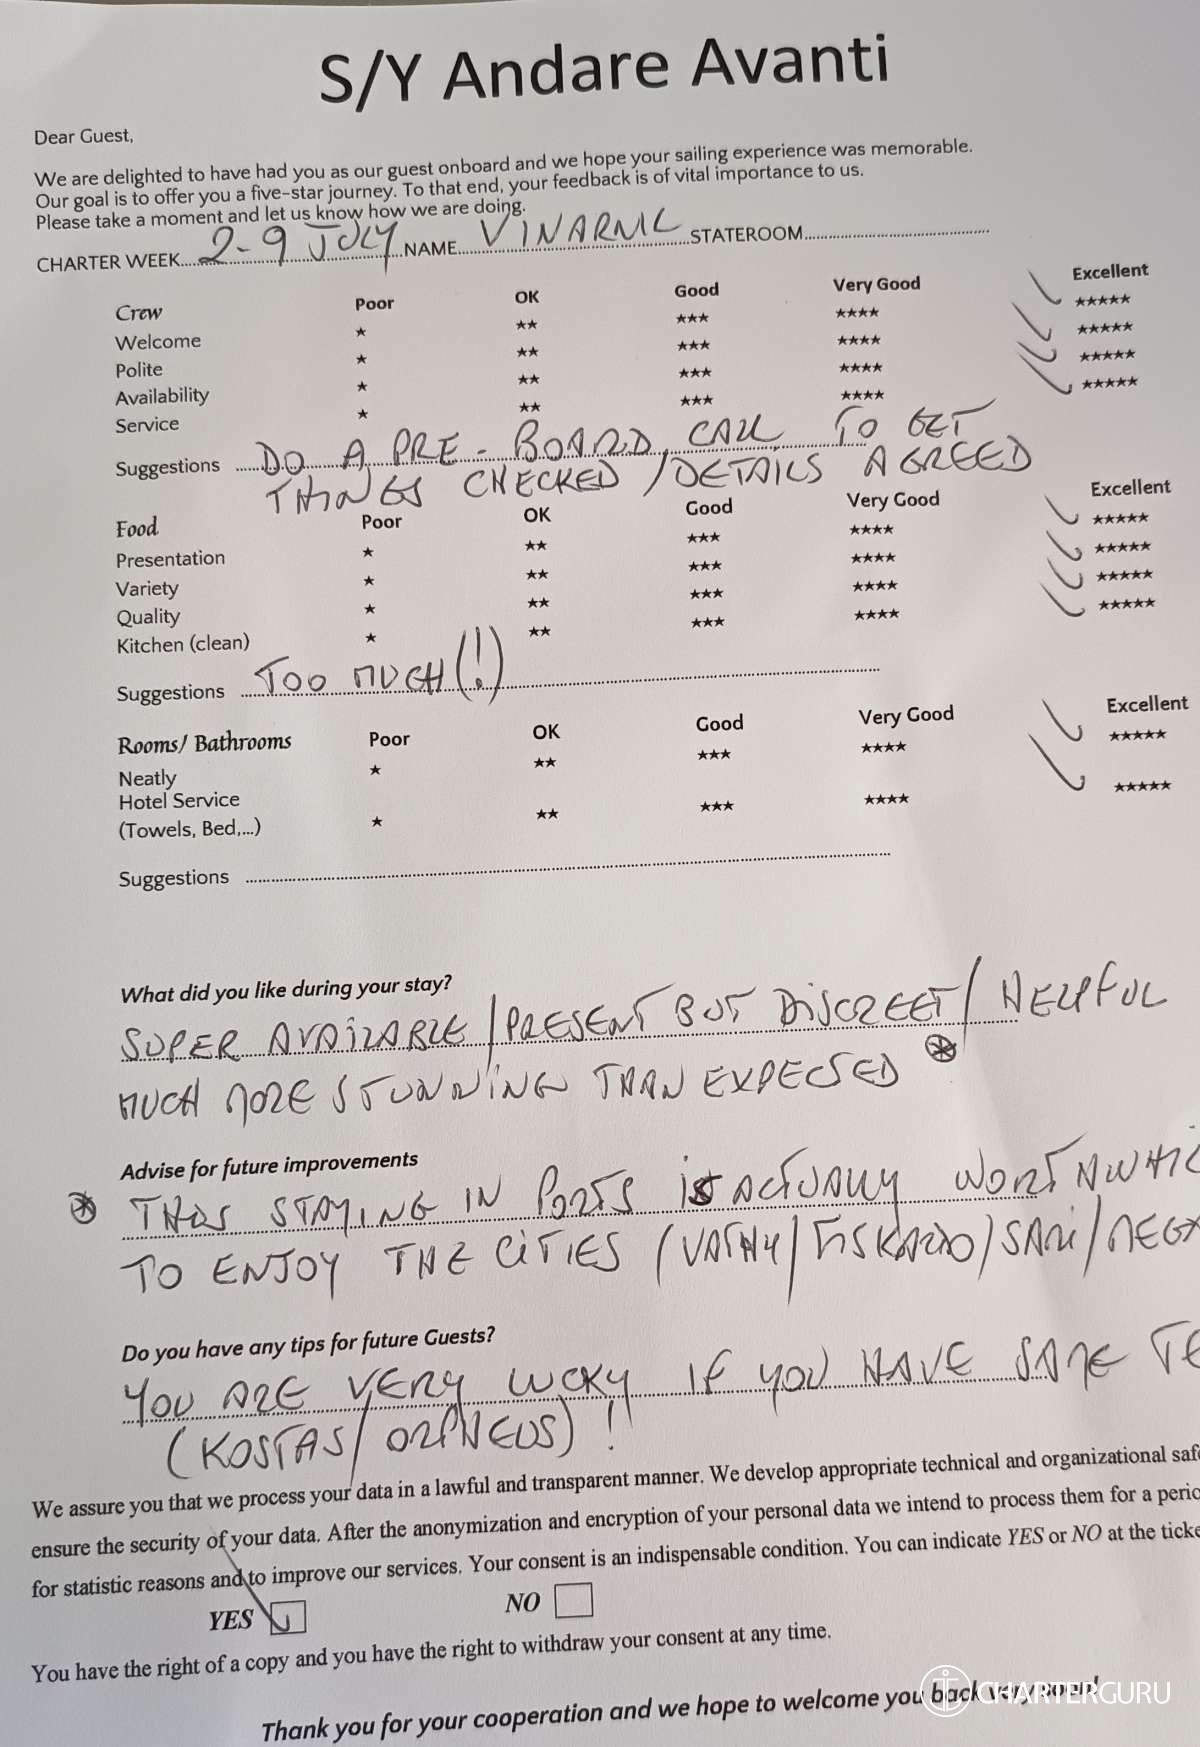 S/Y Andare Avanti
Dear Guest,
We are delighted to have had you as our guest onboard and we hope your sailing experience was memorable.
Our goal is to offer you a five-star journey. To that end, your feedback is of vital importance to us.
Please take a moment and let us know how we are doing.
CHARTER WEEK 2-9 JULY NAME STATEROOM
Crew Poor OK Good Very Good Excellent
Welcome ★ ★★ ★★★ ★★★★ ★★★★★
Polite ★ ★★ ★★★ ★★★★ ★★★★★
Availability ★ ★★ ★★★ ★★★★ ★★★★★
Service ★ ★★ ★★★ ★★★★ ★★★★★
Suggestions DO A PRE-BOARD CALL TO GET
THINGS CHECKED / DETAILS AGREED
Food Poor OK Good Very Good Excellent
Presentation ★ ★★ ★★★ ★★★★ ★★★★★
Variety ★ ★★ ★★★ ★★★★ ★★★★★
Quality ★ ★★ ★★★ ★★★★ ★★★★★
Kitchen (clean) ★ ★★ ★★★ ★★★★ ★★★★★
Suggestions TOO MUCH (!)
Rooms/ Bathrooms Poor OK Good Very Good Excellent
Neatly ★ ★★ ★★★ ★★★★ ★★★★★
Hotel Service
(Towels, Bed,...) ★ ★★ ★★★ ★★★★ ★★★★★
Suggestions
What did you like during your stay?
SUPER AVAILABLE / PRESENT BUT DISCREET / HELPFUL
MUCH MORE STUNNING THAN EXPECTED
Advise for future improvements
STAYING IN PORTS IS ACTUALLY
TO ENJOY THE CITIES (VATHY / FISKARDO / SAMI /
Do you have any tips for future Guests?
YOU ARE VERY LUCKY IF YOU HAVE SAME
(KOSTAS / ORPHEUS) !
We assure you that we process your data in a lawful and transparent manner. We develop appropriate technical and organizational
ensure the security of your data. After the anonymization and encryption of your personal data we intend to process them for a
for statistic reasons and to improve our services. Your consent is an indispensable condition. You can indicate YES or NO at the
YES NO
You have the right of a copy and you have the right to withdraw your consent at any time.
Thank you for your cooperation and we hope to welcome you back very soon!
CHARTERGURU